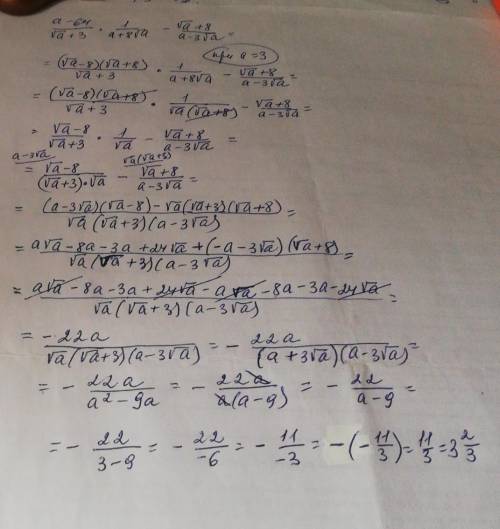 (a-64)/(√a+3) · 1/(a+8√a) - (√a+8)/(a-3√a) =
при a=3
= ((√a-8)(√a+8))/(√a+3) · 1/(a+8√a) - (√a+8)/(a-3√a) =
= ((√a-8)(√a+8))/(√a+3) · 1/(√a(√a+8)) - (√a+8)/(a-3√a) =
= (√a-8)/(√a+3) · 1/√a - (√a+8)/(a-3√a) =
a-3√a √a(√a+3)
= (√a-8)/((√a+3)·√a) - (√a+8)/(a-3√a) =
= ((a-3√a)(√a-8)-√a(√a+3)(√a+8))/(√a(√a+3)(a-3√a)) =
= (a√a-8a-3a+24√a+(-a-3√a)(√a+8))/(√a(√a+3)(a-3√a)) =
= (a√a-8a-3a+24√a-a√a-8a-3a-24√a)/(√a(√a+3)(a-3√a)) =
= (-22a)/(√a(√a+3)(a-3√a)) = - 22a/((a+3√a)(a-3√a)) =
= - 22a/(a²-9a) = - 22a/(a(a-9)) = - 22/(a-9) =
= - 22/(3-9) = - 22/(-6) = - 11/(-3) = -(-11/3) = 11/3 = 3 2/3